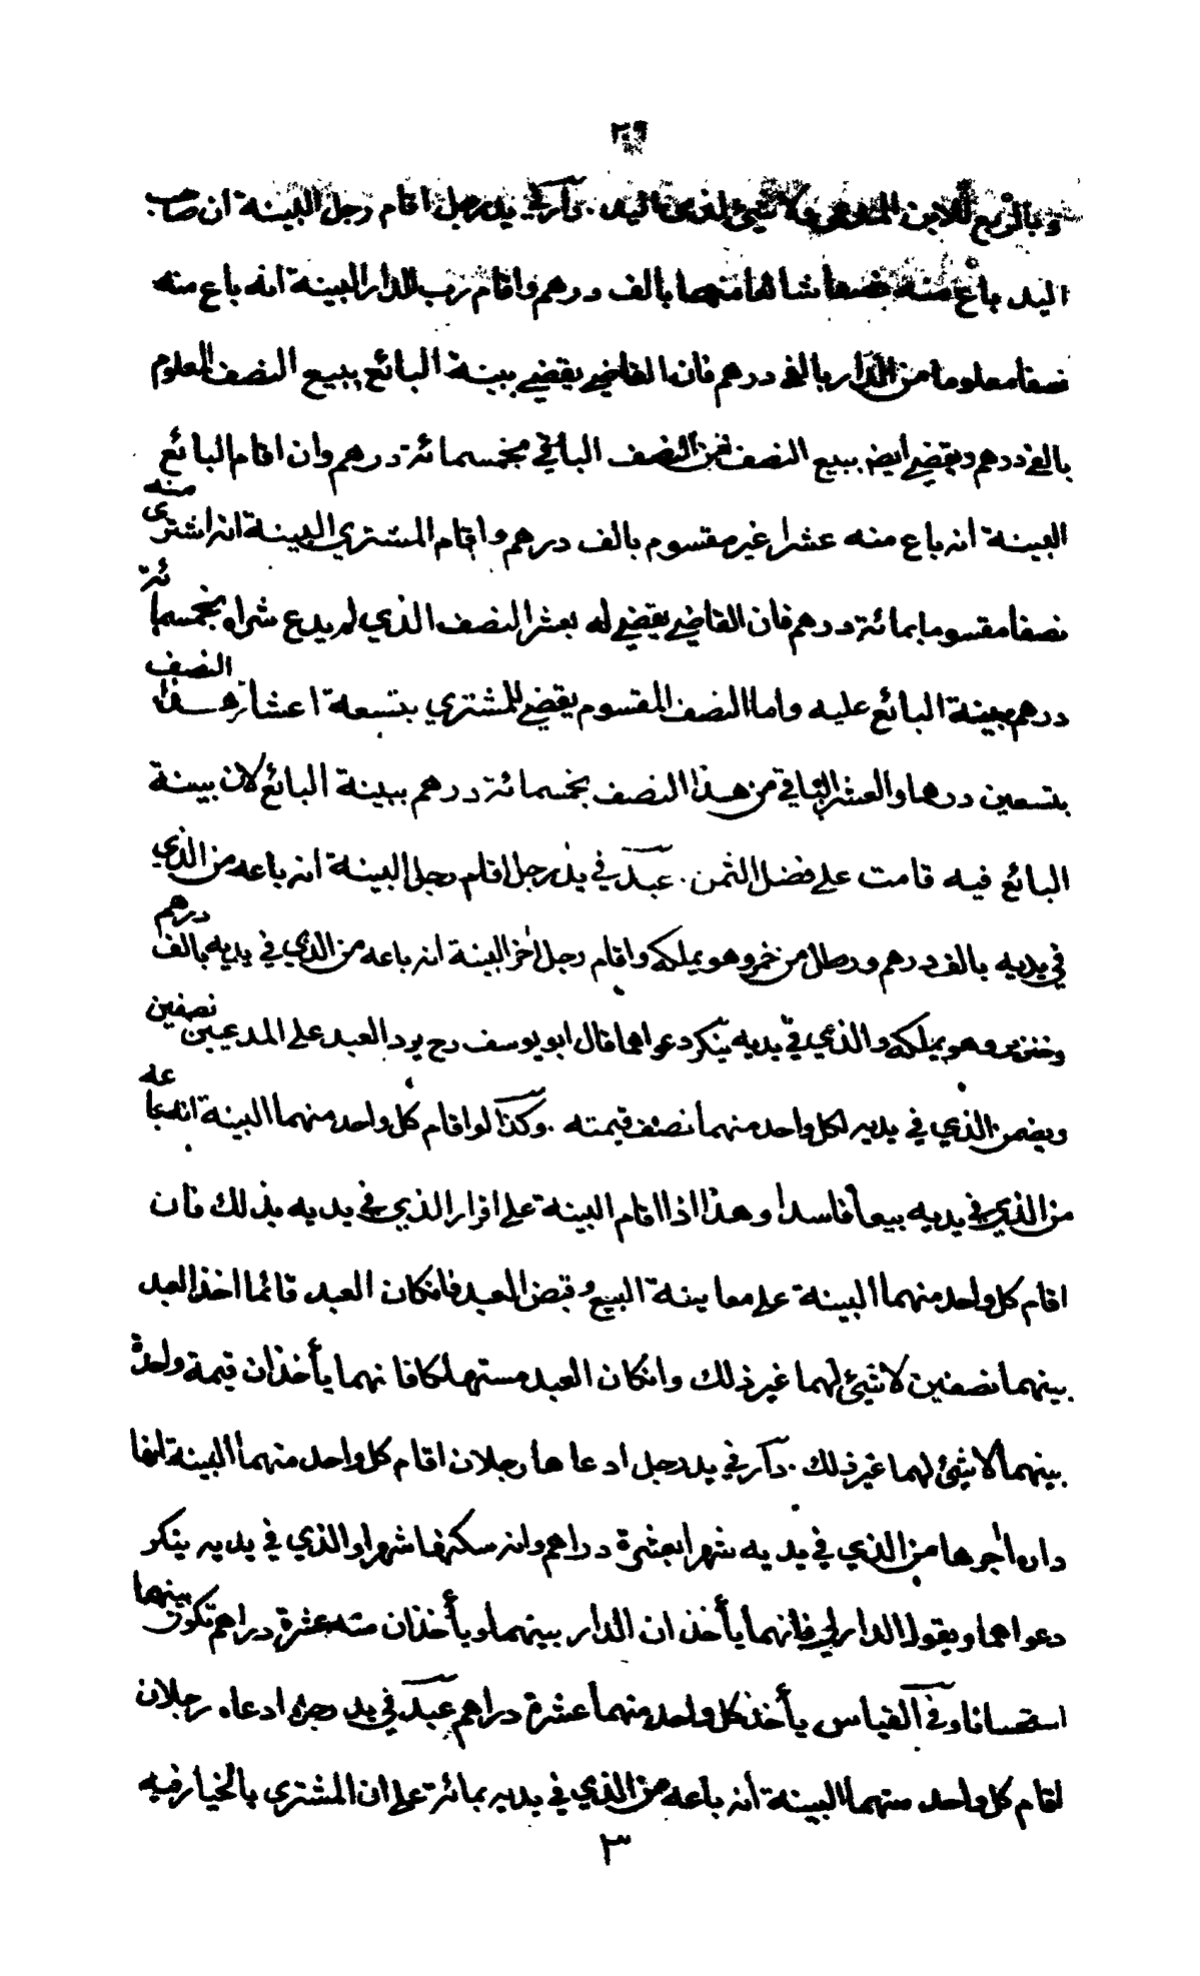 ٢٩
وبالربع للابن المدعي ولا شيئ لذي اليد . دار في يد رجل اقام رجل البينة ان صاحب
اليد باع منه نصفا شائعا منها بالف درهم واقام رب الدار البينة انه باع منه
نصفا معلوما من الدار بالف درهم فان القاضي يقضي ببينة البائع ببيع النصف المعلوم
بالف درهم ويقضي ايضا ببيع النصف من النصف الباقي بخمسمائة درهم وان اقام البائع
البينة انه باع منه عشرا غير مقسوم بالف درهم واقام المشتري البينة انه اشترى منه
نصفا مقسوما بمائة درهم فان القاضي يقضي له بعشر النصف الذي لم يدع شراه بخمسمائة
درهم ببينة البائع عليه واما النصف المقسوم يقضي للمشتري بتسعة اعشار هذا النصف
بتسعين درهما والعشر الباقي من هذا النصف بخمسمائة درهم ببينة البائع لان بينة
البائع فيه قامت على فضل الثمن . عبد في يد رجل اقام رجل البينة انه باعه من الذي
في يديه بالف درهم ورطل من خمر وهو يملكه واقام رجل اخر البينة انه باعه من الذي في يديه بالف درهم
وخنزير وهو يملكه والذي في يديه ينكر دعواهما قال ابو يوسف رح يرد العبد على المدعيين نصفين
ويضمن الذي في يديه لكل واحد منهما نصف قيمته . وكذا لو اقام كل واحد منهما البينة انه باعه
من الذي في يديه بيعا فاسدا وهذا اذا اقام البينة على اقرار الذي في يديه بذلك فان
اقام كل واحد منهما البينة على معاينة البيع وقبض العبد فانكان العبد قائما اخذ العبد
بينهما نصفين لا شيئ لهما غير ذلك وانكان العبد مستهلكا فانهما يأخذان قيمة واحدة
بينهما لا شيئ لهما غير ذلك . دار في يد رجل ادعاها رجلان اقام كل واحد منهما البينة انها
داره اجرها من الذي في يديه شهرا بعشرة دراهم وانه سكنها شهرا والذي في يديه ينكر
دعواهما ويقول الدار لي فانهما يأخذان الدار بينهما ويأخذان منه عشرة دراهم تكون بينهما
استحسانا وفي القياس يأخذ كل واحد منهما عشرة دراهم عبد في يد رجل ادعاه رجلان
اقام كل واحد منهما البينة انه باعه من الذي في يديه بمائة على ان المشترى بالخيار فيه
٣